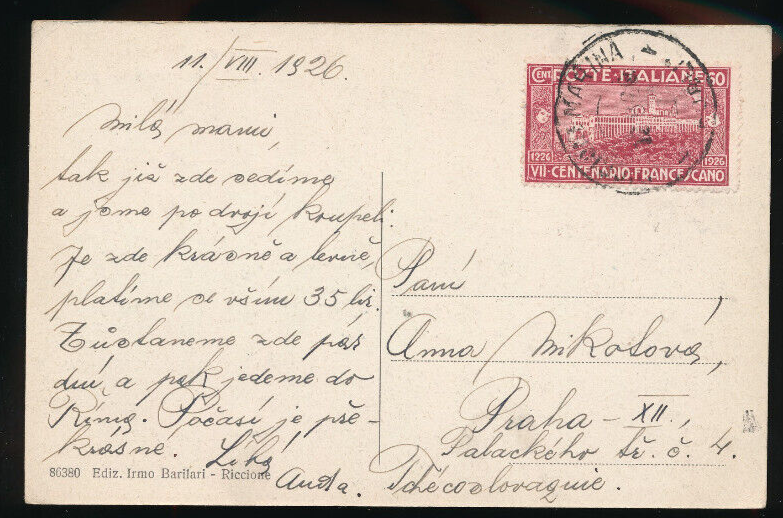 11./VIII. 1926.
Milá mami,
tak již zde sedíme
a jsme po drojí koupeli.
Je zde krásně a levně,
platíme se vším 35 lir.
Zůstaneme zde pár
dní a pak jedeme do
Říma. Počasí je pře-
krásné. Líbá
Anda.
86380 Ediz. Irmo Barilari - Riccione
CENT POSTE·ITALIANE 60
1226 1926
VII·CENTENARIO·FRANCESCANO
MARINA
Paní
Anna Mikotová,
Praha - XII.,
Palackého tř. č. 4.
Tchécoslovaquie.